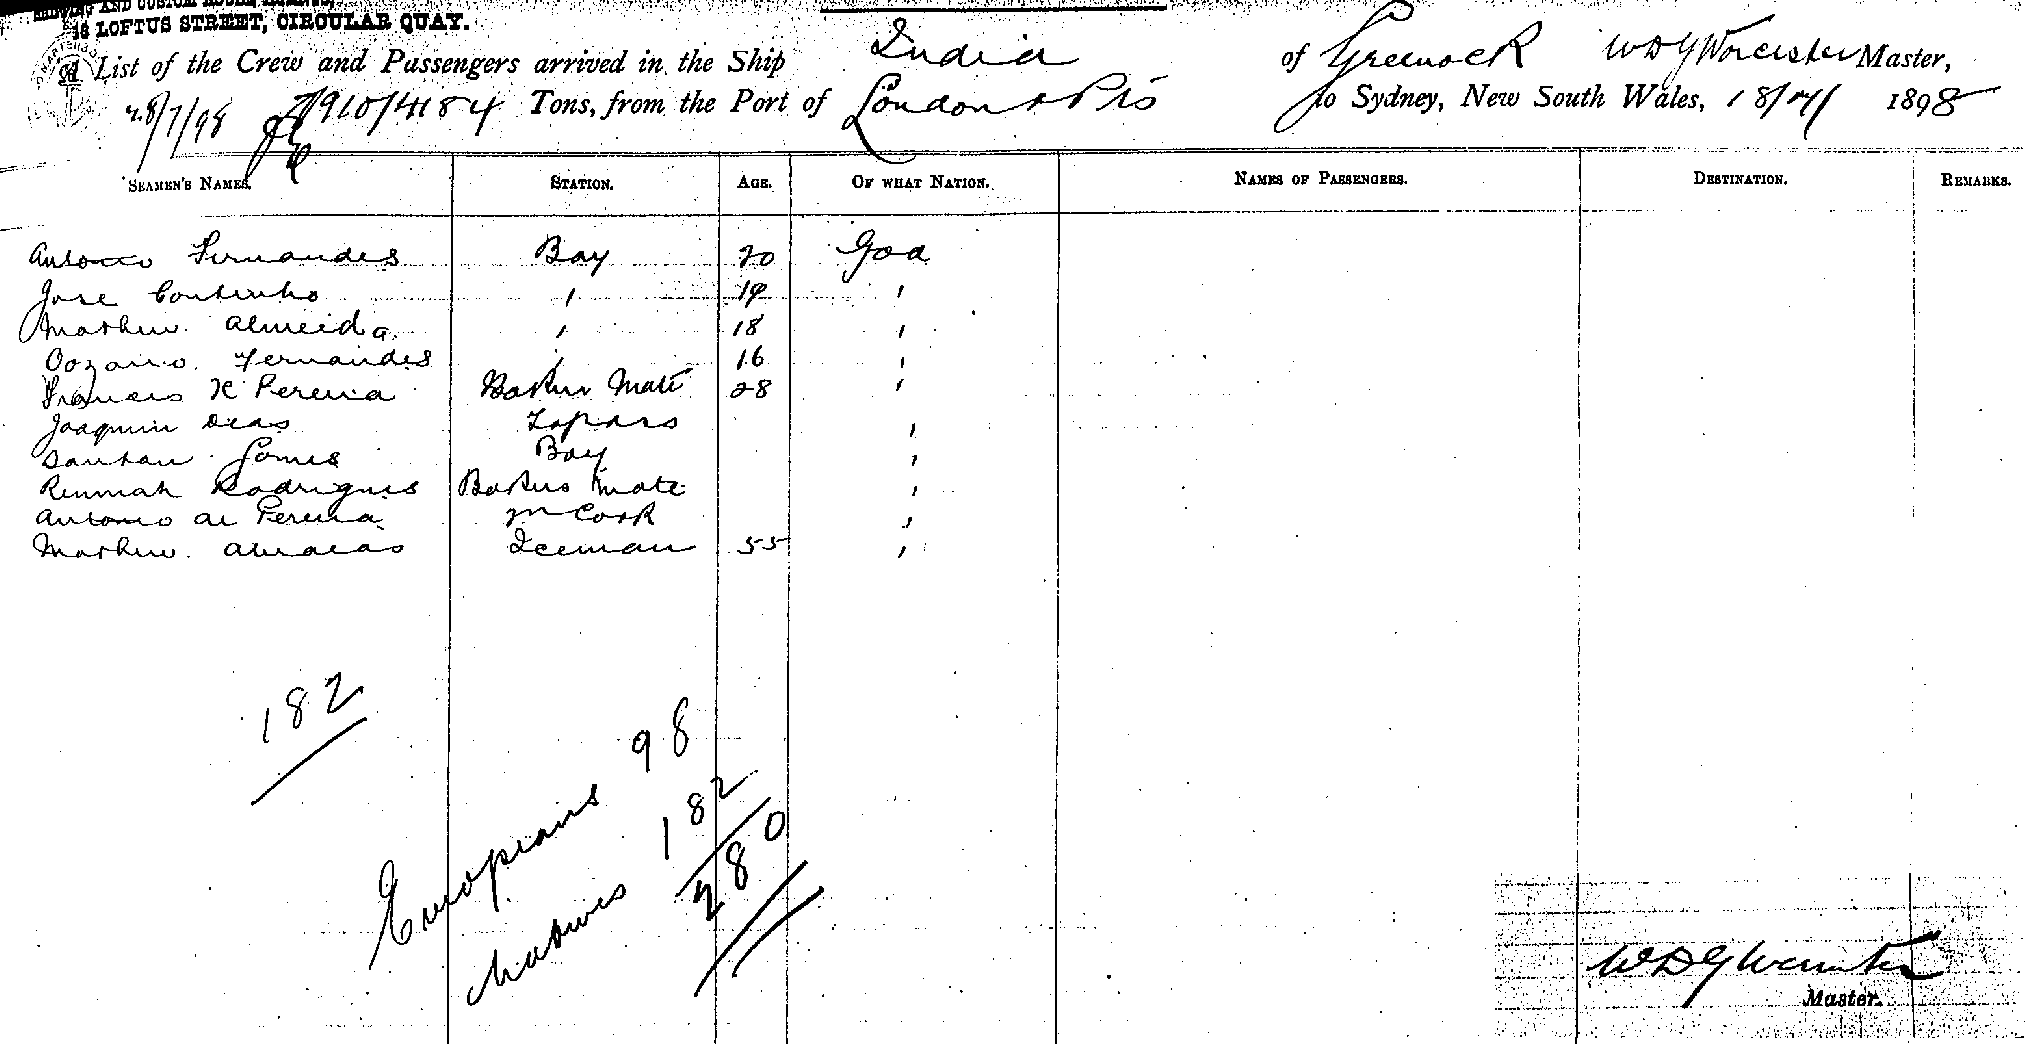 AND CUSTOM HOUSE
LOFTUS STREET, CIRCULAR QUAY.
A List of the Crew and Passengers arrived in the Ship India of Greenock WDG Worcester Master,
7910/4184 Tons, from the Port of London & Pts to Sydney, New South Wales, 18/7/ 1898
28/7/98
SEAMEN'S NAMES. STATION. AGE. OF WHAT NATION. NAMES OF PASSENGERS. DESTINATION. REMARKS.
Antonio Fernandes Boy 20 Goa
Jose Coutinho " 19 "
Mathew Almeida " 18 "
Fernandes " 16 "
Francis X Pereira Bakers Mate 28 "
Joaquim Dias Topass "
Santan Gomes Boy "
Rodrigues Bakers Mate "
Antonio de Pereira m Cook "
Mathew Iceman 55 "
182
Europeans 98
Natives 182
280
WDG Worcester
Master.